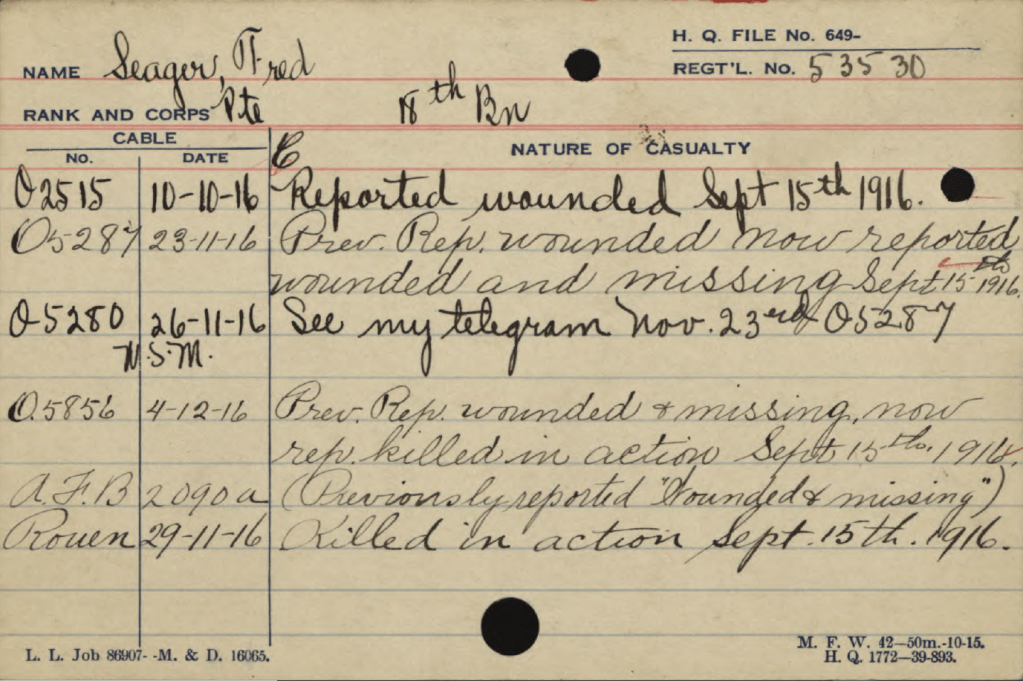 H. Q. FILE No. 649-
NAME Seager, Fred
REGT'L. No. 53530
RANK AND CORPS Pte 18th Bn
CABLE
NO. DATE
C NATURE OF CASUALTY
O 2515 10-10-16 Reported wounded Sept 15th 1916.
O5287 23-11-16 Prev. Rep. wounded now reported
wounded and missing Sept 15th 1916.
O5280 26-11-16 See my telegram Nov. 23rd O5287
M.S.M.
O.5856 4-12-16 Prev. Rep. wounded & missing, now
rep. killed in action Sept 15th. 1916.
A.F.B 2090a (Previously reported "Wounded & missing")
Rouen 29-11-16 Killed in action Sept. 15th. 1916.
L. L. Job 86907- -M. & D. 16065.
M. F. W. 42—50m.-10-15.
H. Q. 1772—39-893.